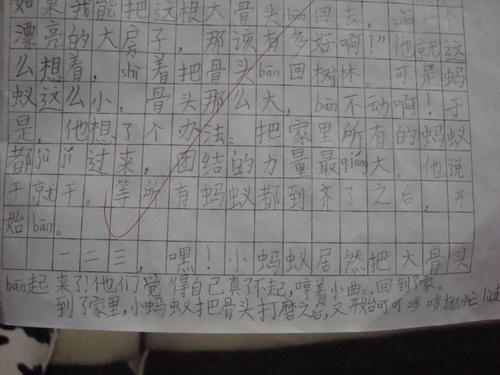 如果我能把这根大骨头bān回去，zào一个
漂亮的大房子，那该有多好啊！”他就这
么想着，shì着把骨头bān回树林。可是蚂
蚁这么小，骨头那么大，bān不动啊！于
是，他想了个办法：把家里所有的蚂蚁
都jù jí过来，团结的力量最qiáng大。他说
干就干。等所有蚂蚁都到齐了之后，开
始bān。
一二三，嘿！小蚂蚁居然把大骨头
bān起来了！他们觉得自己真了不起，哼着小曲儿回到了家。
到了家里，小蚂蚁把骨头打磨之后，又开始叮叮当当地忙